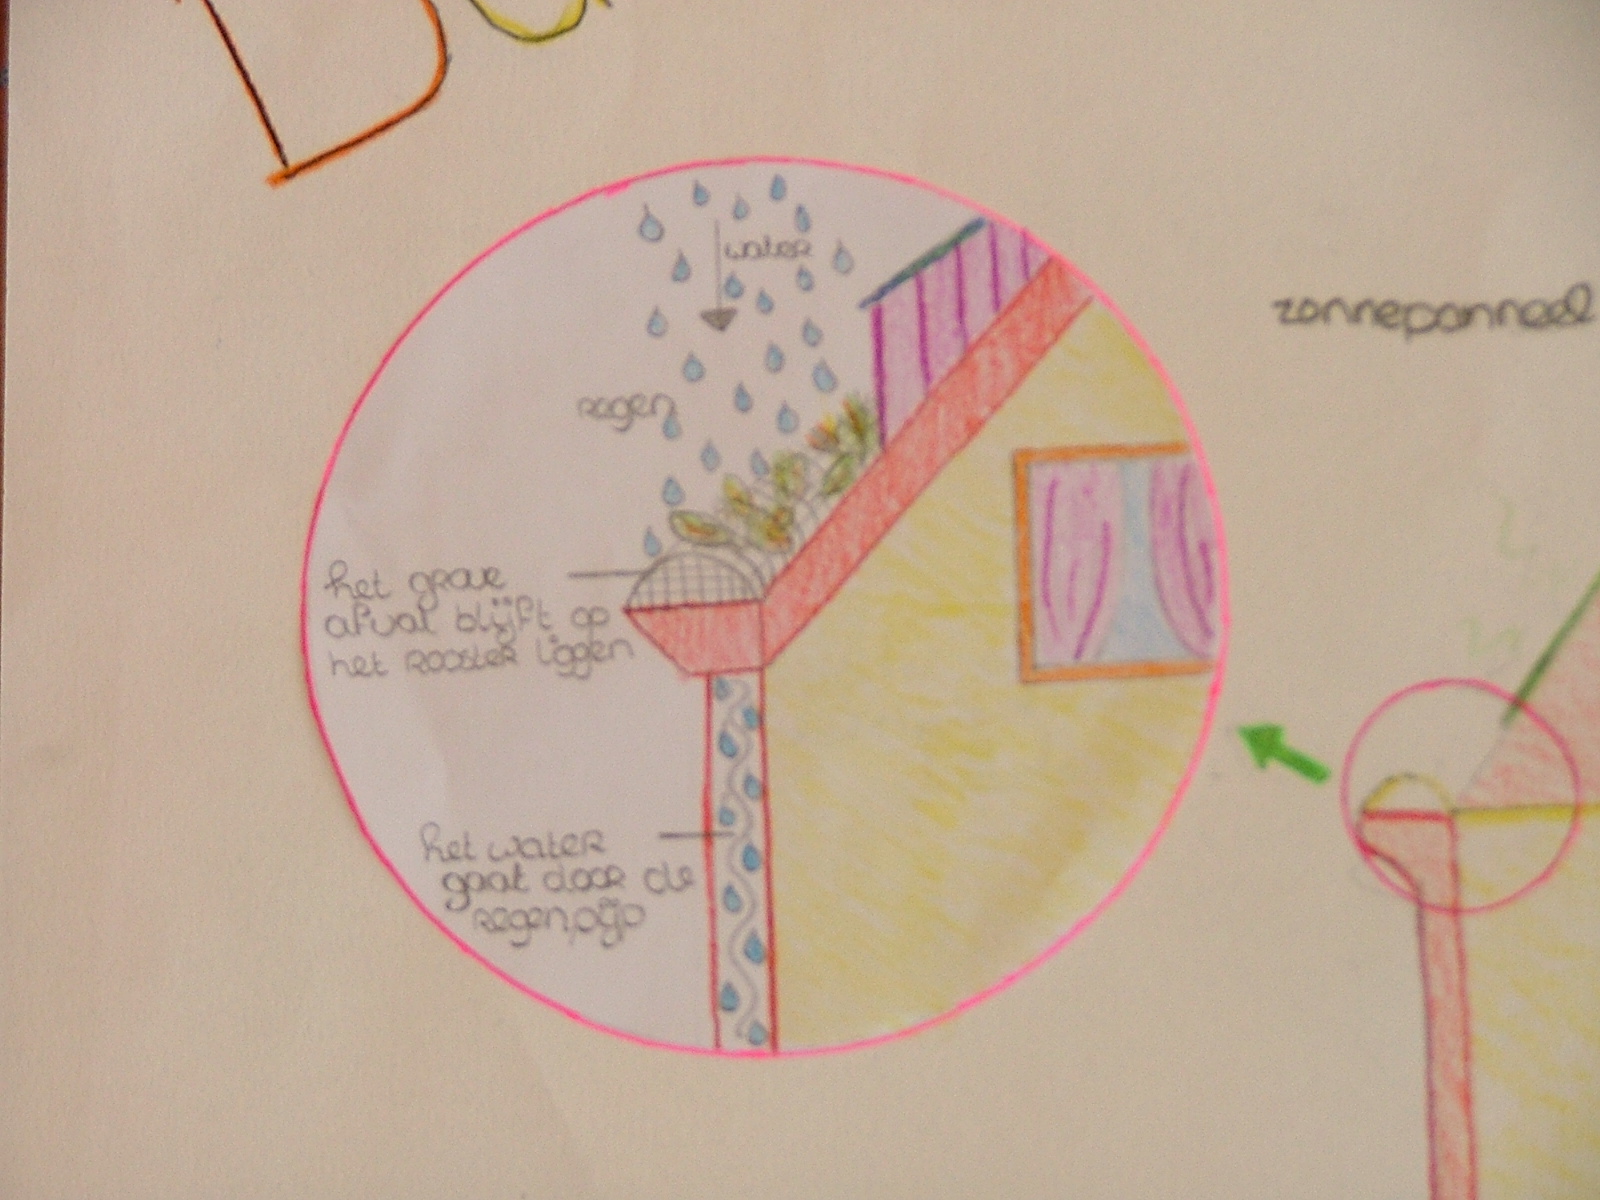 water
regen
zonnepanneel
het grove
afval blijft op
het rooster liggen
het water
gaat door de
regenpijp